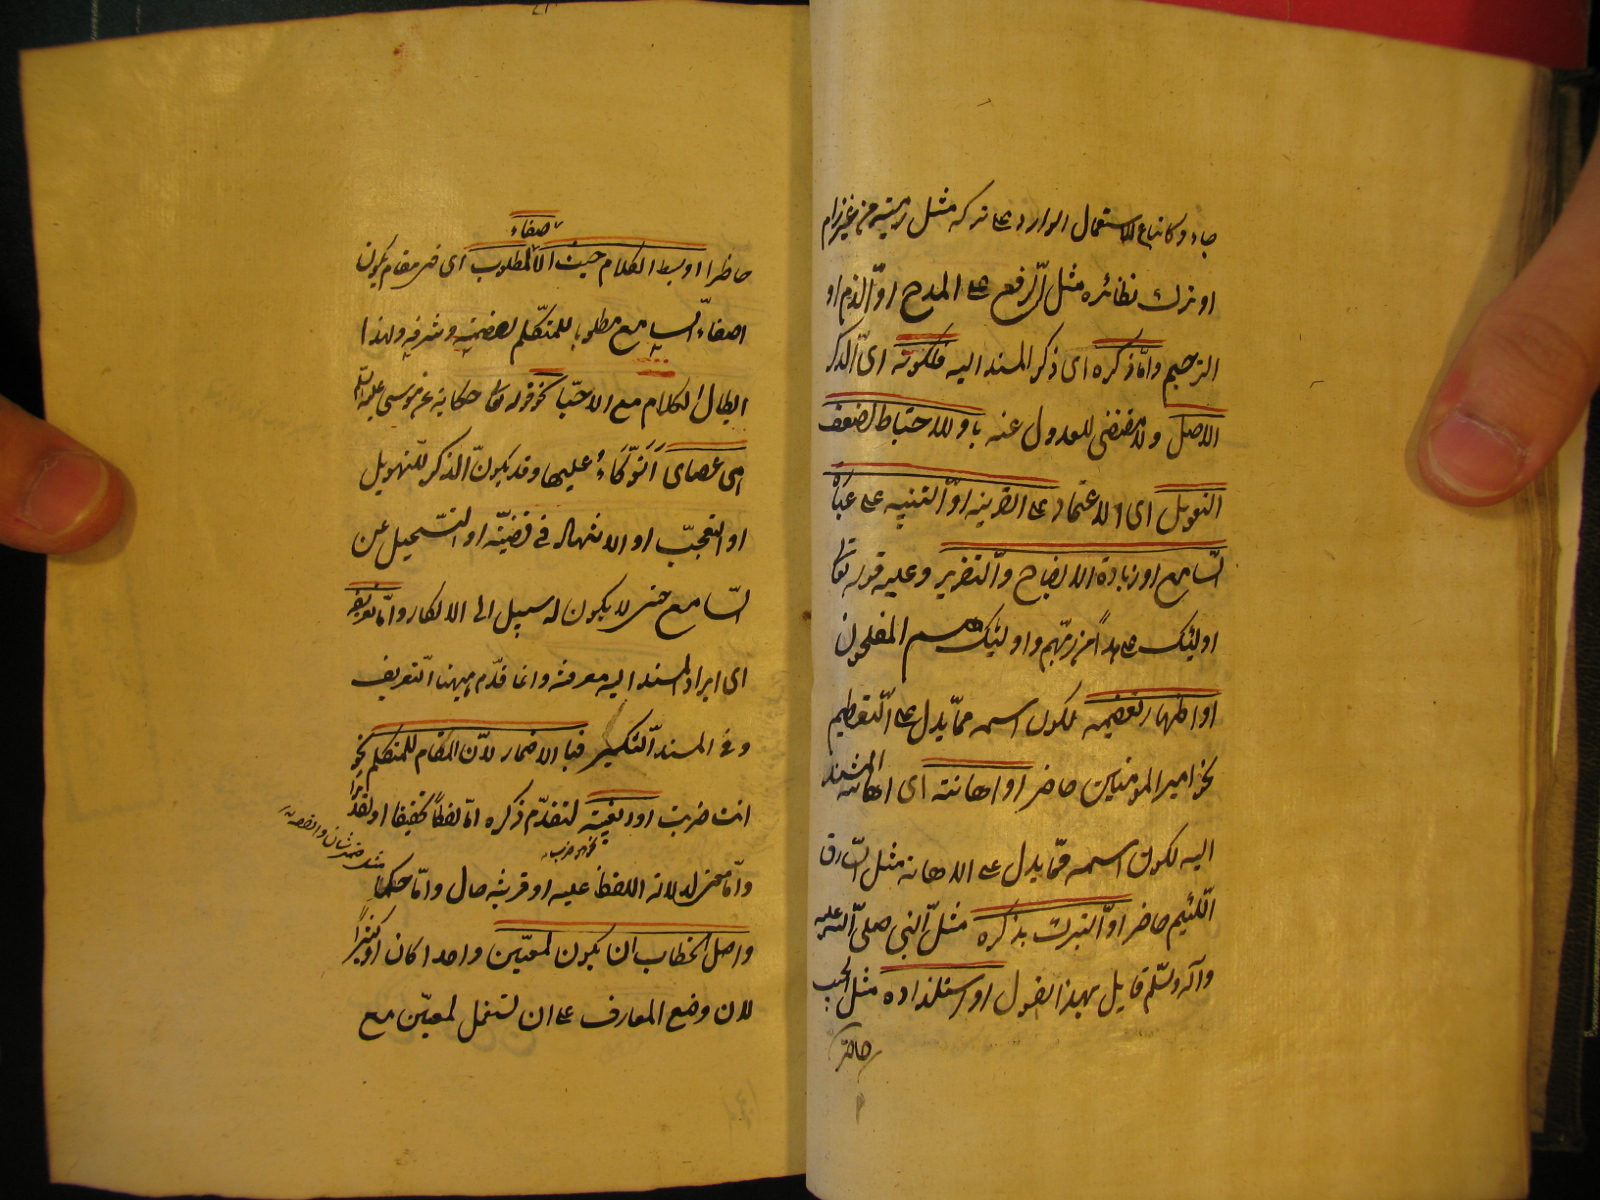 جاء وكاتباع الاستعمال الوارد على تركه مثل رمية من غير رام
او ترك نظائره مثل الرفع على المدح او الذم او
الترحيم واما ذكره اى ذكر المسند اليه فلكونه اى الذكر
الاصل ولا مقتضى للعدول عنه او للاحتياط لضعف
التعويل اى الاعتماد على القرينه او التنبيه على غباوة
السّامع او زيادة الايضاح والتقرير وعليه قوله تعا
اولئك على هدًا من ربّهم واولئك هم المفلحون
او اظهار تعضيمه لكون اسمه ممّا يدل على التعظيم
نحو امير المومنين حاضر او اهانته اى اهانة المسند
اليه لكون اسمه ممّا يدل على الاهانه مثل السّارق
اللئيم حاضر او التبرك بذكره مثل النبى صلى الله عليه
وآله وسلّم قايل بهذا القول او استلذاذه مثل الحبيب
حاضر
اصغاء
حاظرا او بسط الكلام حيث الا المطلوب اى فى مقام يكون
اصغاء السامع مطلوبا للمتكلم لعضمته وشرفه ولهذا
ايطال الكلام مع الاحبّا نحو قوله تعا حكاية عن موسى عليه السلم
هى عصاى اَتَوَكّاَءُ عليها وقد يكون الذكر للتهويل
او التعجّب او الاشهاد فى قضيّته او التسجيل عن
السّامع حتى لا يكون له سبيل الى الانكار وامّا تعريفه
اى ايراد المسند اليه معرفة وانما قدّم ههنا التعريف
وفى المسند التنكير فبا الاضمار لانّ المقام للمتكلم نحو
انت ضربت او لغيبته لتقدّم ذكره امّا لفظاً تحقيقا او تقديرا
نحو هو ضرب
وامّا معنى لدلالة اللفظ عليه او قرينة حال وامّا حكما
مثل ضمير شان والقصه
واصل الخطاب ان يكون لمعيّن واحدا كان او كثيراً
لان وضع المعارف على ان تستعمل لمعيّن مع